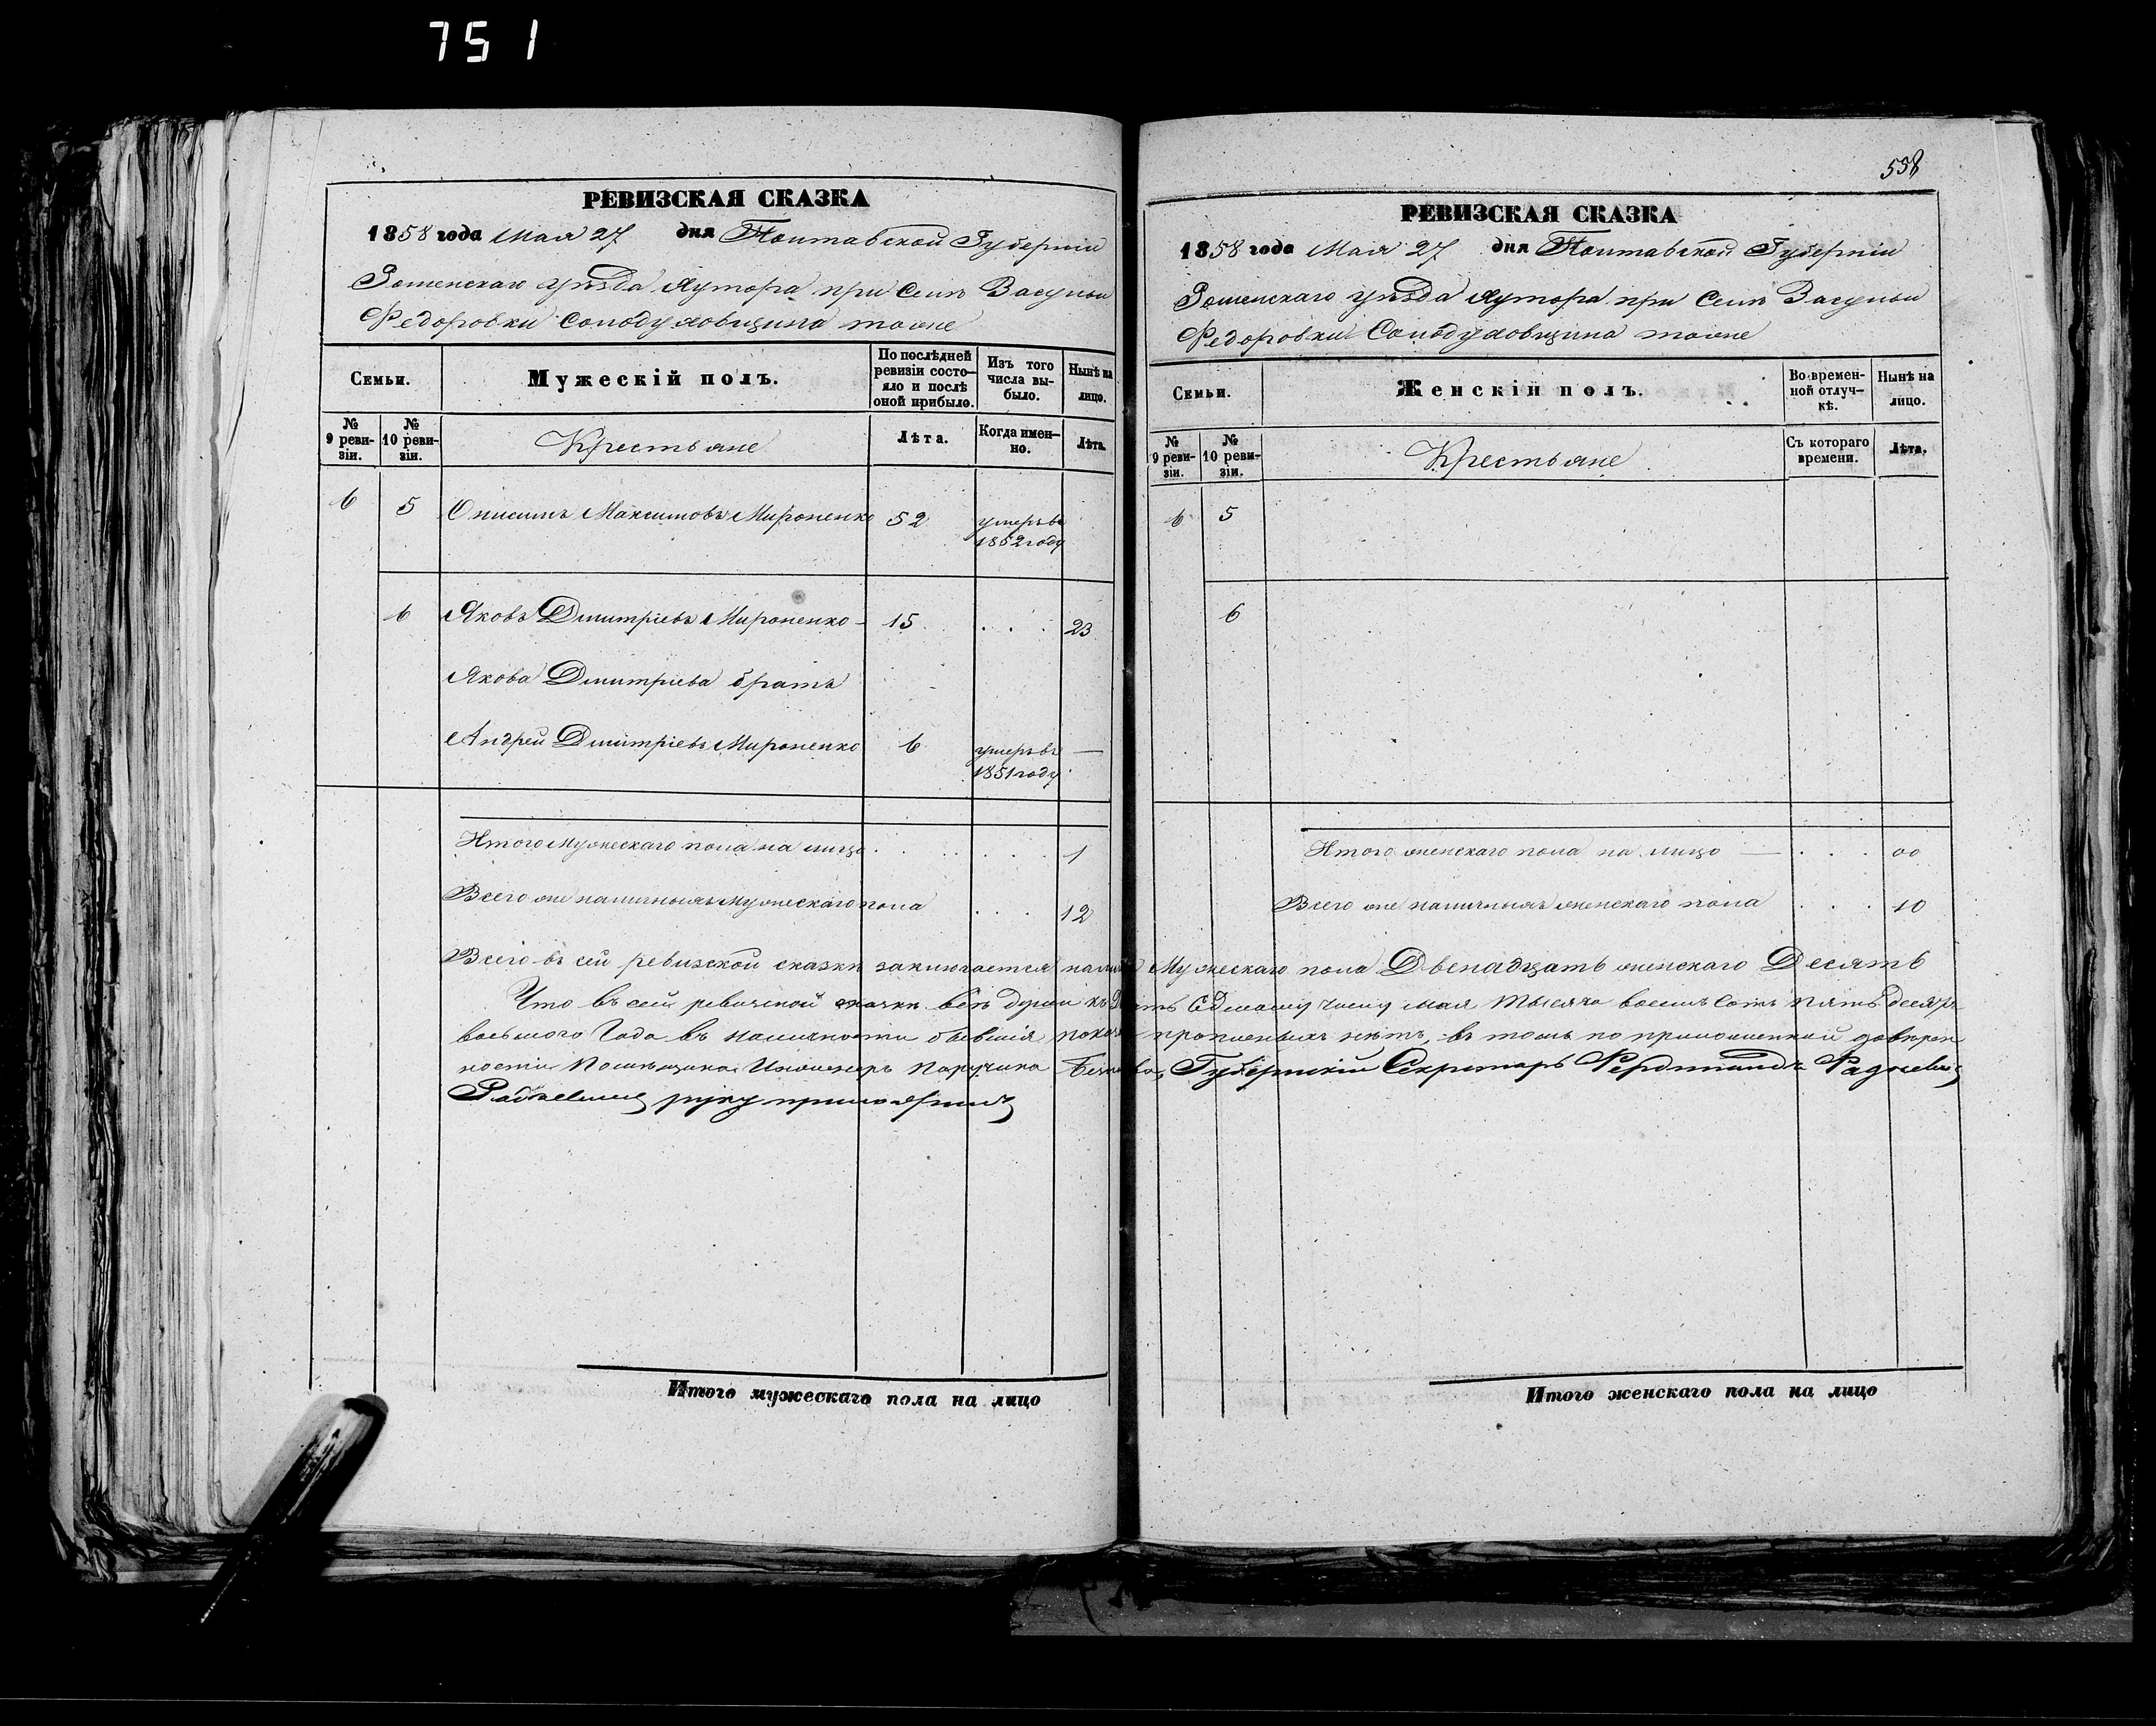 751
РЕВИЗСКАЯ СКАЗКА
1858 года Мая 27 дня Полтавской Губерніи
Роменскаго уѣзда Хутора при Селѣ Засульи
Федоровки Солодуховщина тоже
Семьи.
Мужескій полъ.
По послѣдней ревизіи состояло и послѣ оной прибыло.
Изъ того числа выбыло.
Нынѣ на лицо.
№ 9 ревизіи.
№ 10 ревизіи.
Крестьяне
Лѣта.
Когда именно.
Лѣта.
6 5 Онисимъ Максимовъ Мироненко 52 умеръ въ 1852 году
6 Яковъ Дмитріевъ Мироненко 15 . . . 23
Якова Дмитріева братъ
Андрей Дмитріевъ Мироненко 6 умеръ въ 1851 году —
Итого мужескаго пола на лицо . . . . . 1
Всего же наличныхъ мужескаго пола . . . 12
558
РЕВИЗСКАЯ СКАЗКА
1858 года Мая 27 дня Полтавской Губерніи
Роменскаго уѣзда Хутора при Селѣ Засульи
Федоровки Солодуховщина тоже
Семьи.
Женскій полъ.
Во временной отлучкѣ.
Нынѣ на лицо.
№ 9 ревизіи.
№ 10 ревизіи.
Крестьяне
Съ котораго времени.
Лѣта.
6 5
6
Итого женскаго пола на лицо — . . . 00
Всего же наличныхъ женскаго пола . . . 10
Всего въ сей ревизской сказкѣ заключается Мужескаго пола Двенадцать женскаго Десять
Что въ сей ревизской сказки всѣ души къ Седьмому числу мая тысяча восемь сотъ пять десятъ
восьмого Года въ наличности бывшія прописныхъ нѣтъ, въ томъ по приложенной доверен
ности Помѣщика Инженеръ Поручика Губернскій Секретарь Фердинандъ
руку приложилъ
Итого мужескаго пола на лицо
Итого женскаго пола на лицо